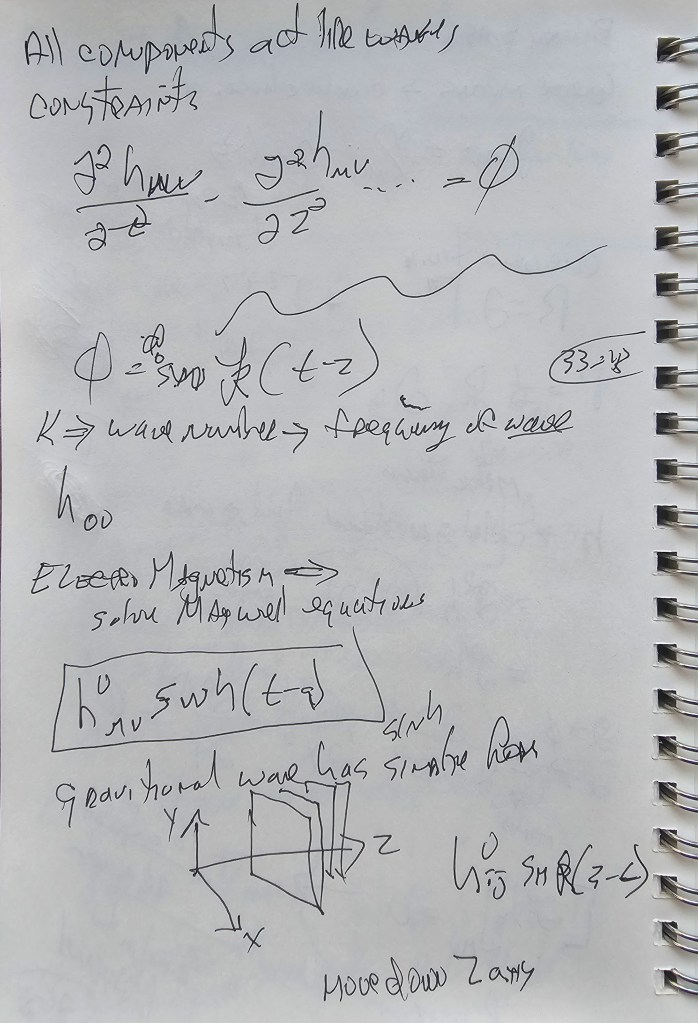 All components act like waves
CONSTRAINTS
∂²hμν/∂t² - ∂²hμν/∂z² .... = ϕ
ϕ = ϕ₀ sin k(t-z)
33=48
K ⇒ wave number → frequency of wave
h₀₀
Electro Magnetism ⇒
solve Maxwell equations
h⁰μν sin h(t-z)
sinh
gravitional wave has
Y
Z
X
h⁰ij sin k(z-t)
Move down Z axis